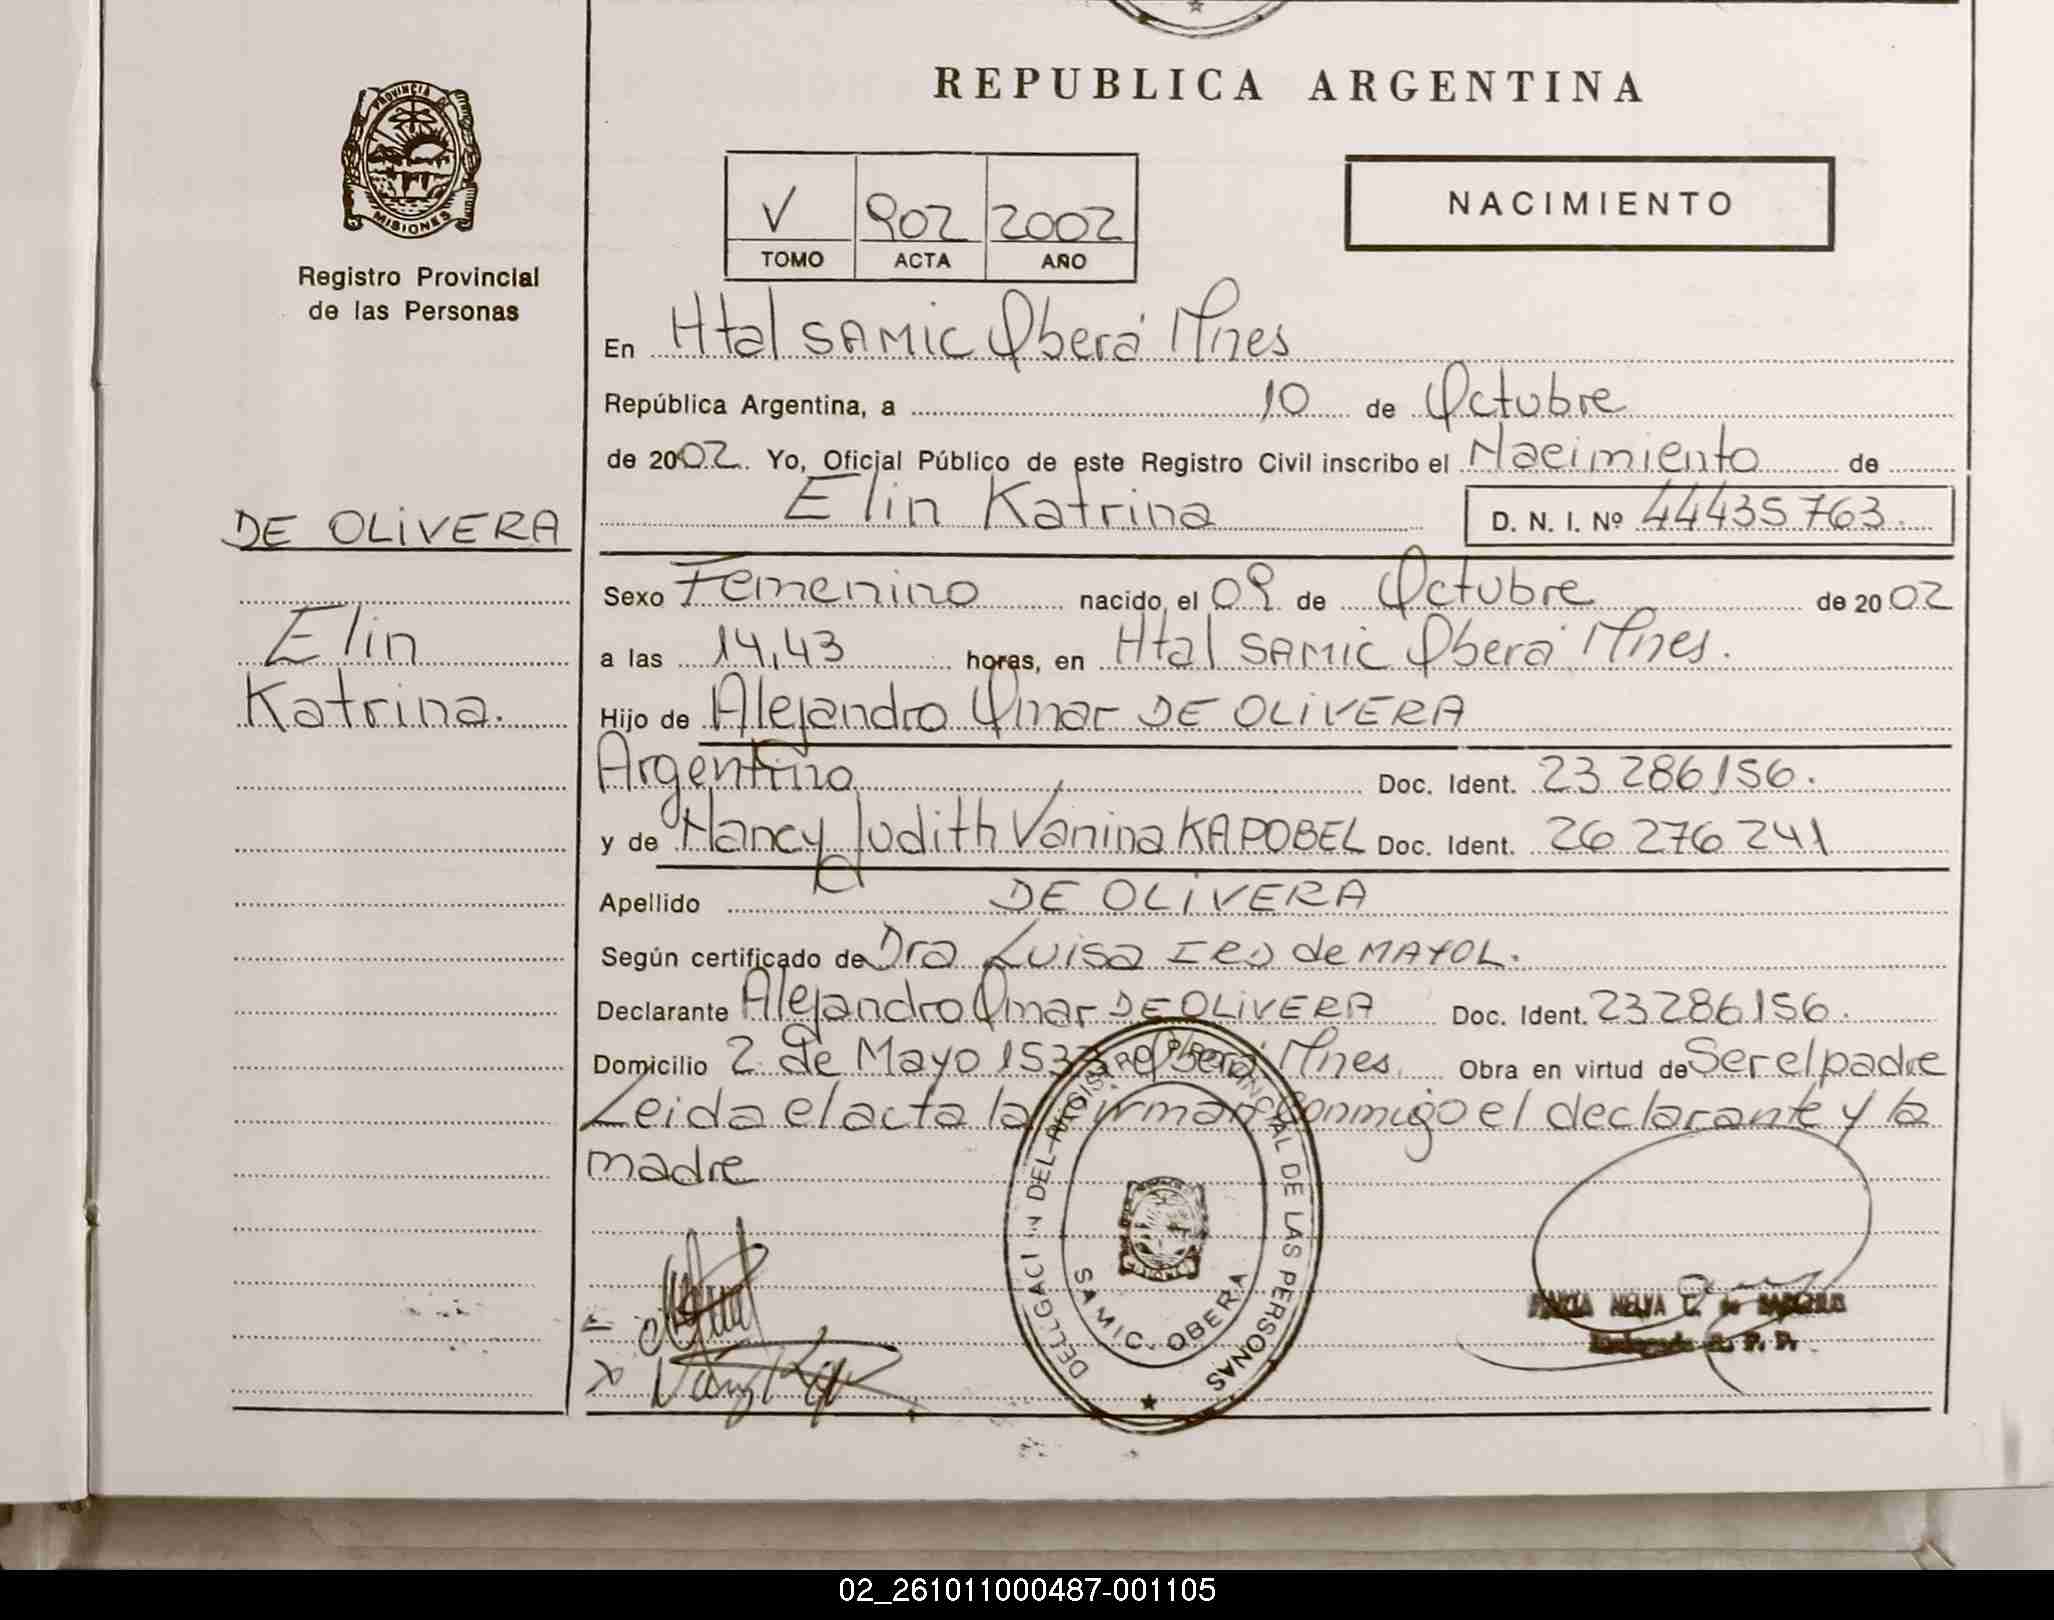 PROVINCIA DE
MISIONES
Registro Provincial
de las Personas
DE OLIVERA
Elin
Katrina.
REPUBLICA ARGENTINA
V 902 2002
TOMO ACTA AÑO
NACIMIENTO
En Htal SAMIC Oberá Mnes
República Argentina, a 10 de Octubre
de 2002. Yo, Oficial Público de este Registro Civil inscribo el Nacimiento de
Elin Katrina D. N. I. Nº 44435763.
Sexo Femenino nacido, el 09 de Octubre de 2002
a las 14,43 horas, en Htal SAMIC Oberá Mnes.
Hijo de Alejandro Omar DE OLIVERA
Argentino Doc. Ident. 23 286156.
y de Nancy Judith Vanina KAPOBEL Doc. Ident. 26 276 241
Apellido DE OLIVERA
Según certificado de Dra Luisa de MAYOL.
Declarante Alejandro Omar DE OLIVERA Doc. Ident. 23286156.
Domicilio 2 de Mayo 1533 Oberá Mnes. Obra en virtud de Ser el padre
Leida el acta la firman conmigo el declarante y la
madre
DELEGACI N DEL REGISTRO PROVINCIAL DE LAS PERSONAS
SAMIC. OBERA
02_261011000487-001105